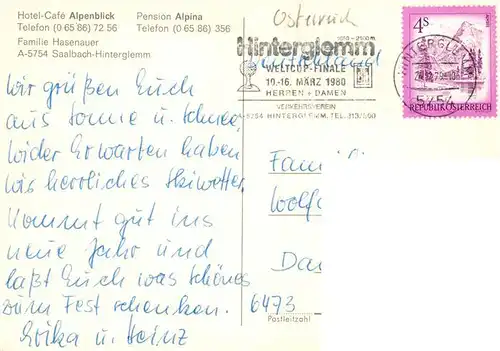 Hotel-Café Alpenblick
Telefon (0 65 86) 72 56
Pension Alpina
Telefon (0 65 86) 356
Familie Hasenauer
A-5754 Saalbach-Hinterglemm
Österreich
Hinterglemm
WELTCUP-FINALE
10.-16. MÄRZ 1980
HERREN + DAMEN
VERKEHRSVEREIN
A-5754 HINTERGLEMM, TEL.
4S
REPUBLIK ÖSTERREICH
HINTERGLEMM
5754
Wir grüßen Euch
aus Sonne u. Schnee.
Wider Erwarten haben
wir herrliches Skiwetter.
Kommt gut ins
neue Jahr und
laßt Euch was schönes
zum Fest schenken.
Erika u. Heinz
Fami
Wolf
Da
6473
Postleitzahl